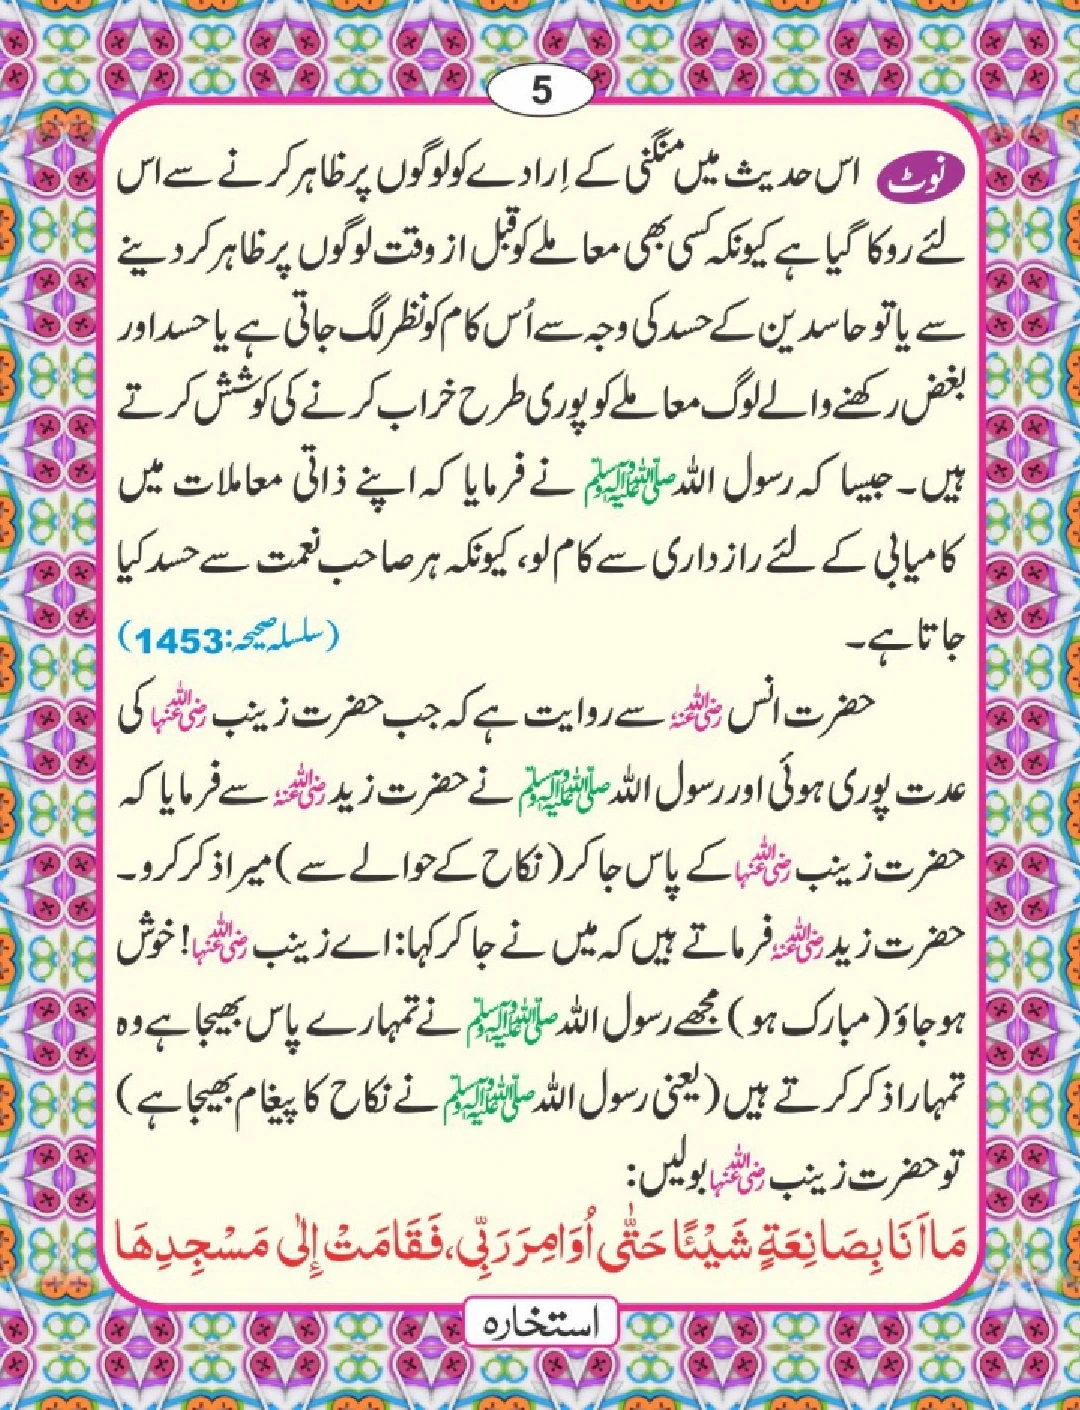 5
نوٹ اس حدیث میں منگنی کے اِرادے کو لوگوں پر ظاہر کرنے سے اس
لئے روکا گیا ہے کیونکہ کسی بھی معاملے کو قبل از وقت لوگوں پر ظاہر کر دینے
سے یا تو حاسدین کے حسد کی وجہ سے اُس کام کو نظر لگ جاتی ہے یا حسد اور
بغض رکھنے والے لوگ معاملے کو پوری طرح خراب کرنے کی کوشش کرتے
ہیں۔ جیسا کہ رسول اللہ صلی اللہ علیہ وآلہ وسلم نے فرمایا کہ اپنے ذاتی معاملات میں
کامیابی کے لئے رازداری سے کام لو، کیونکہ ہر صاحب نعمت سے حسد کیا
جاتا ہے۔ (سلسلہ صحیحہ:1453)
حضرت انس رضی اللہ عنہ سے روایت ہے کہ جب حضرت زینب رضی اللہ عنہا کی
عدت پوری ہوئی اور رسول اللہ صلی اللہ علیہ وآلہ وسلم نے حضرت زید رضی اللہ عنہ سے فرمایا کہ
حضرت زینب رضی اللہ عنہا کے پاس جا کر (نکاح کے حوالے سے) میرا ذکر کرو۔
حضرت زید رضی اللہ عنہ فرماتے ہیں کہ میں نے جا کر کہا: اے زینب رضی اللہ عنہا! خوش
ہو جاؤ (مبارک ہو) مجھے رسول اللہ صلی اللہ علیہ وآلہ وسلم نے تمہارے پاس بھیجا ہے وہ
تمہارا ذکر کرتے ہیں (یعنی رسول اللہ صلی اللہ علیہ وآلہ وسلم نے نکاح کا پیغام بھیجا ہے)
تو حضرت زینب رضی اللہ عنہا بولیں:
مَا اَنَا بِصَانِعَةٍ شَيْئًا حَتّٰى اُوَامِرَ رَبِّي، فَقَامَتْ اِلٰى مَسْجِدِهَا
استخارہ